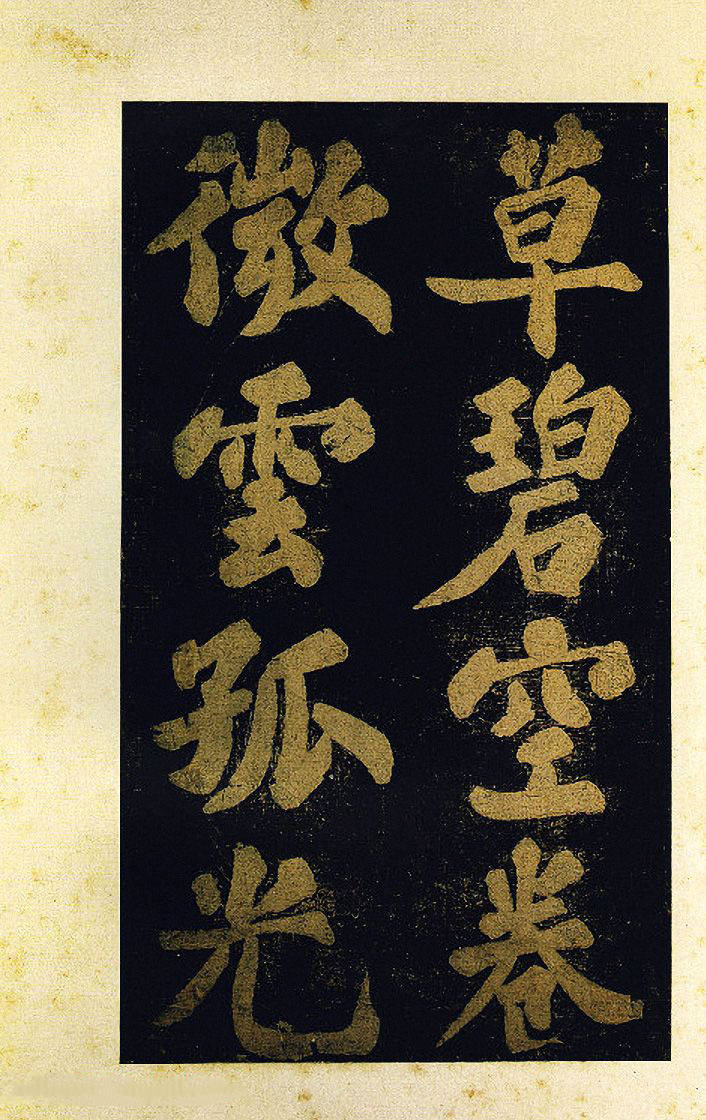 草碧空卷
微雲孤光